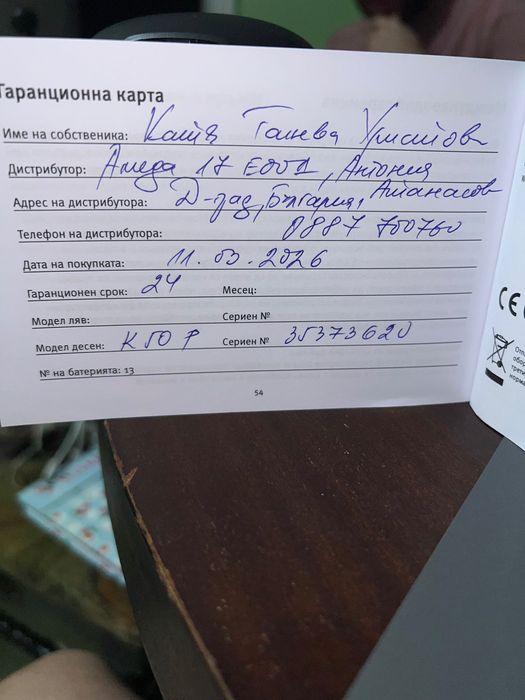 Гаранционна карта
Име на собственика: Катя Ганева Христова
Дистрибутор: Амеда 17 ЕООД, Антония
Адрес на дистрибутора: Д-град, България, Атанасов
Телефон на дистрибутора: 0887 700760
Дата на покупката: 11.03.2026
Гаранционен срок: 24 Месец:
Модел ляв: Сериен №
Модел десен: K50 P Сериен № 35373620
№ на батерията: 13
54
CE